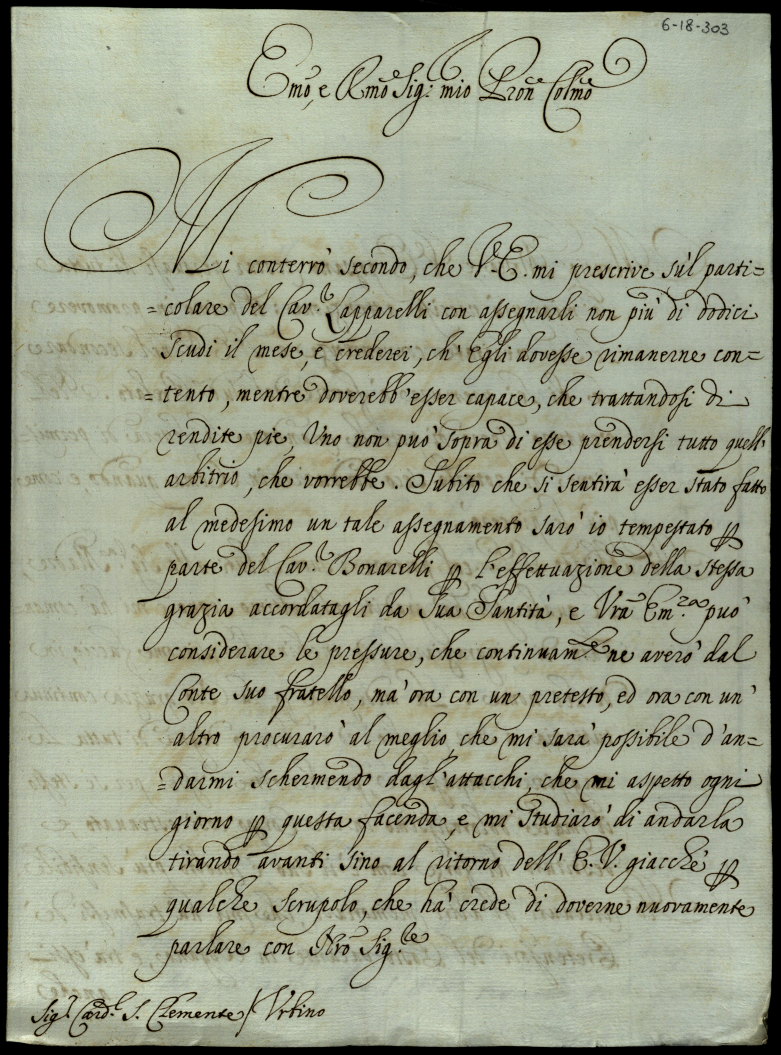 6-18-303
Emo, e Rmo Sig.r mio Pron Colmo
Mi conterrò secondo, che V.E. mi prescrive sù'l parti=
=colare del Cav.r Lapparelli con assegnarli non più di dodici
scudi il mese, e crederei, ch'Egli dovesse rimanerne con=
=tento, mentre doverebb'esser capace, che trattandosi di
rendite pie, Uno non può sopra di esse prendersi tutto quell'
arbitrio, che vorrebbe. Subito che si sentirà esser stato fatto
al medesimo un tale assegnamento sarò io tempestato ꝑ
parte del Cav.r Bonarelli ꝑ l'effettuazione della stessa
grazia accordatagli da Sua Santità, e Vra Em.za può
considerare le pressure, che continuam.te ne averò dal
Conte suo fratello, mà ora con un pretesto, ed ora con un'
altro procurarò al meglio, che mi sarà possibile d'an=
=darmi schermendo dagl'attacchi, che mi aspetto ogni
giorno ꝑ questa facenda, e mi studiarò di andarla
tirando avanti sino al ritorno dell'E.V. giacchè ꝑ
qualche scrupolo, che hà crede di doverne nuovamente
parlare con Nro Sig.re
Sig.r Card.l S. Clemente / Urbino